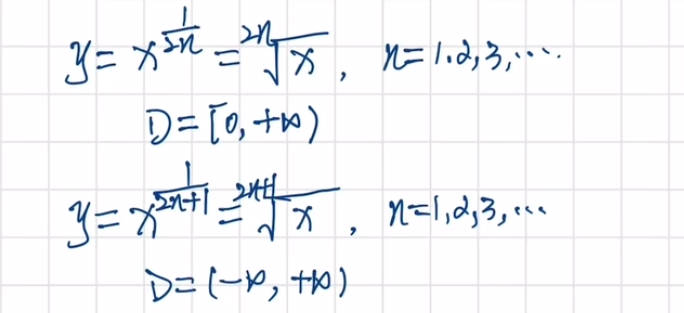 y = x^{\frac{1}{2n}} = \sqrt[2n]{x}, n=1.2,3,....
D=[0,+∞)
y = x^{\frac{1}{2n+1}} = \sqrt[2n+1]{x}, n=1,2,3,...
D=(-∞,+∞)